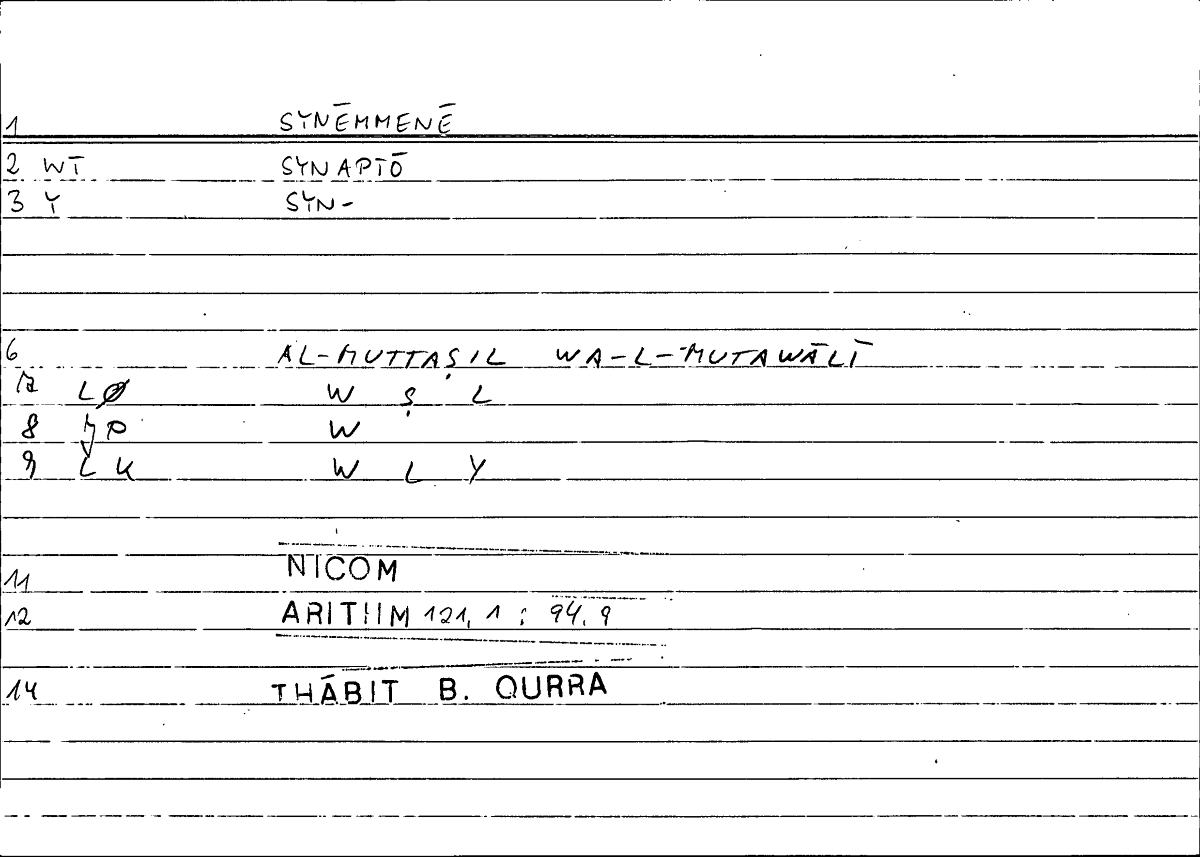 1 SYNĒMMENĒ
2 WT SYNAPTŌ
3 Y SYN-
6 AL-MUTTAṢIL WA-L-MUTAWĀLĪ
7 LØ W Ṣ L
8 JP W
9 LK W L Y
11 NICOM
12 ARITHM 121, 1 : 94.9
14 THĀBIT B. QURRA